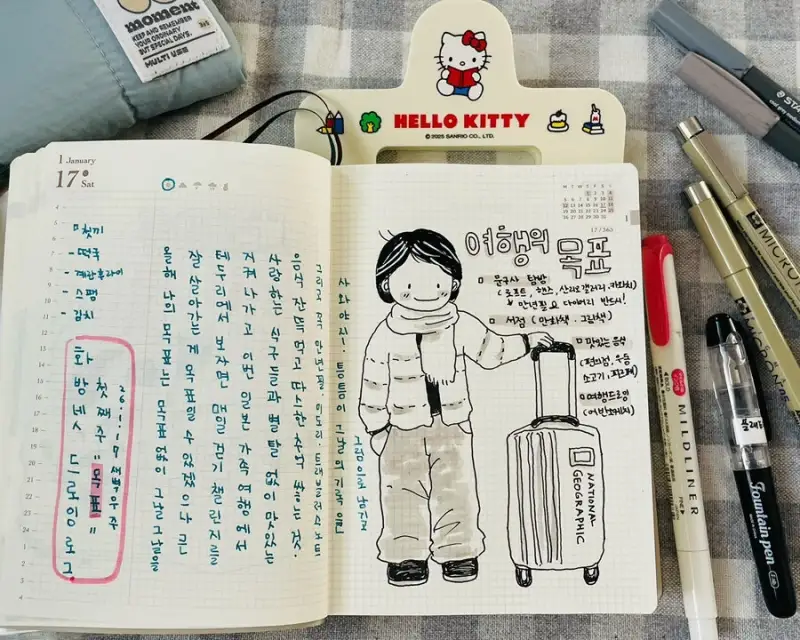 moment
KEEP AND REMEMBER
YOUR ORDINARY
BUT SPECIAL DAYS.
MULTI
HELLO KITTY
© 2025 SANRIO CO., LTD.
1 January
17 Sat
첫끼
- 떡국
- 계란후라이
- 스팸
- 김치
화방넥스 드로잉로그
첫째주 "목표"
26.1.17 새벽우주
올해 나의 목표는 목표없이 그날그날을
잘 살아가는 게 목표일 수 있겠으나 큰
테두리에서 보자면 매일 걷기 챌린지를
지켜나가고 이번 일본 가족여행에서
사랑하는 식구들과 별 탈 없이 맛있는
음식 잔뜩 먹고 따스한 추억 쌓는 것.
그리고 꼭 만년필, 미도리 트래블러스노트
사와야지! 틈틈이 그날의 기록을
그림으로 남기고
17/365
여행의 목표
문구사 탐방
(로프트, 핸즈, 산리오갤러리
만년필 & 다이어리 반드시!
서점 (만화책 · 그림책)
맛있는 음식
(편의점, 우동
소고기
여행드로잉
NATIONAL
GEOGRAPHIC
MILDLINER
Fountain pen
MICRON
MICRON 05